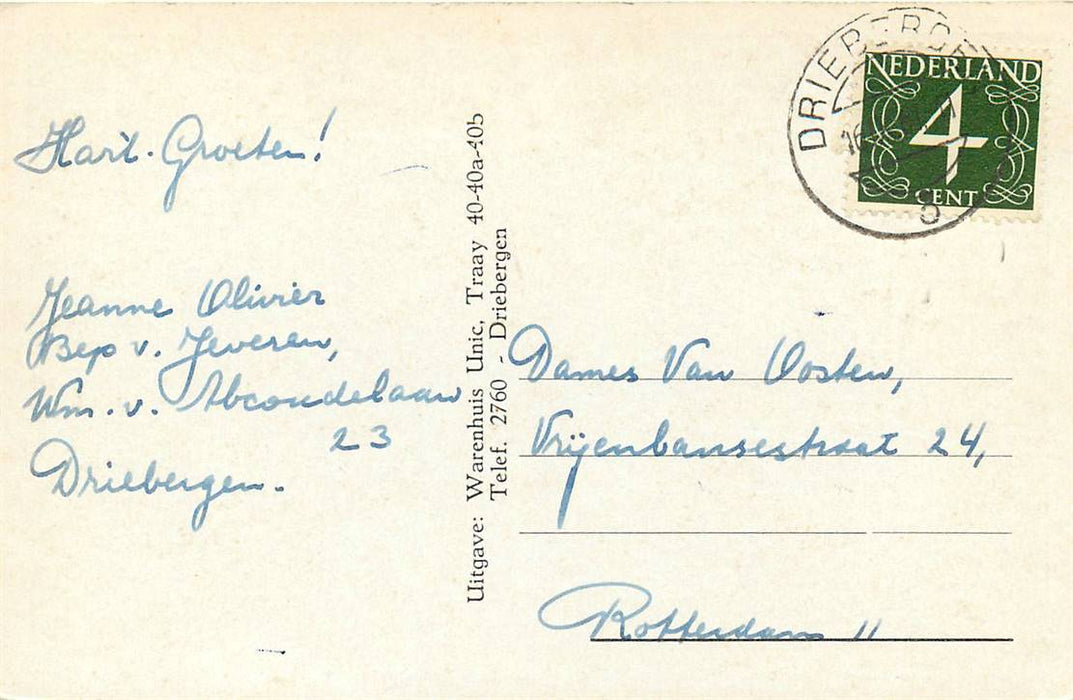 Hart. Groeten!
Jeanne Olivier
Bep v. Jeveren,
Wm. v. Abcoudelaan
23
Driebergen.
Uitgave: Warenhuis Unic, Traay 40-40a-40b
Telef. 2760 - Driebergen
DRIEBERGEN
16
8
NEDERLAND
4
CENT
Dames Van Oosten,
Vrijenbansestraat 24,
Rotterdam 11